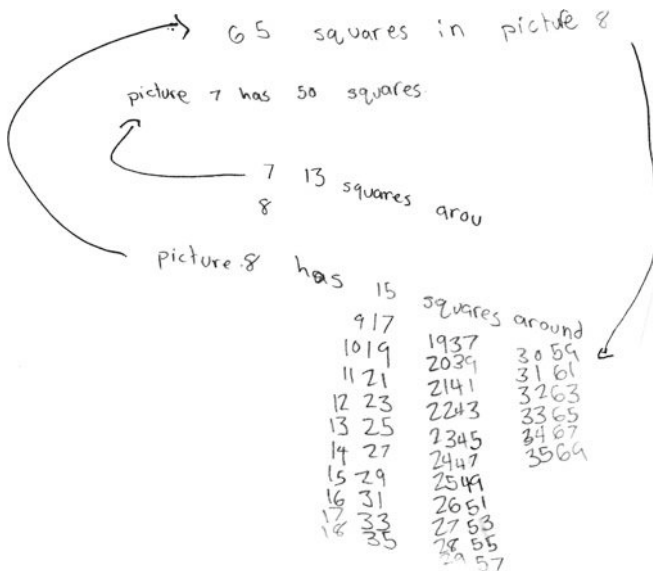 65 squares in picture 8
picture 7 has 50 squares.
7 13 squares arou
8
picture.8 has 15 squares around
9 17
10 19
11 21
12 23
13 25
14 27
15 29
16 31
17 33
18 35
19 37
20 39
21 41
22 43
23 45
24 47
25 49
26 51
27 53
28 55
29 57
30 59
31 61
32 63
33 65
34 67
35 69